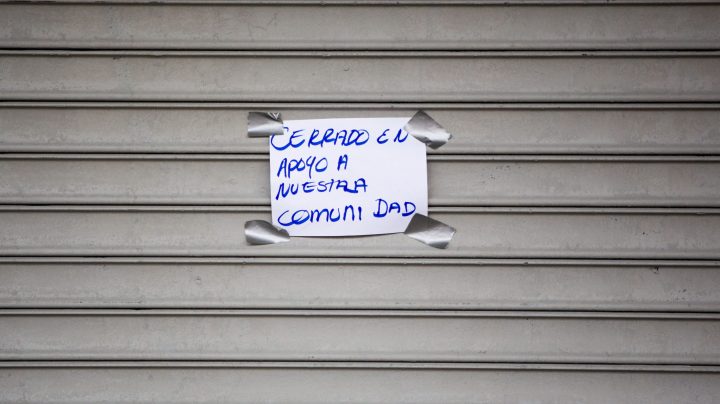 CERRADO EN
APOYO A
NUESTRA
COMUNI DAD